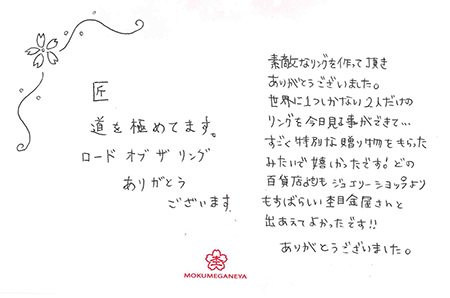 匠
道を極めてます。
ロード オブ ザ リング
ありがとう
ございます。
素敵なリングを作って頂き
ありがとうございました。
世界に1つしかない2人だけの
リングを今日見る事ができて…
すごく特別な贈り物をもらった
みたいで嬉しかったです!どの
百貨店よりもジュエリーショップより
もすばらしい杢目金屋さんと
出あえてよかったです!!
ありがとうございました。
MOKUMEGANEYA